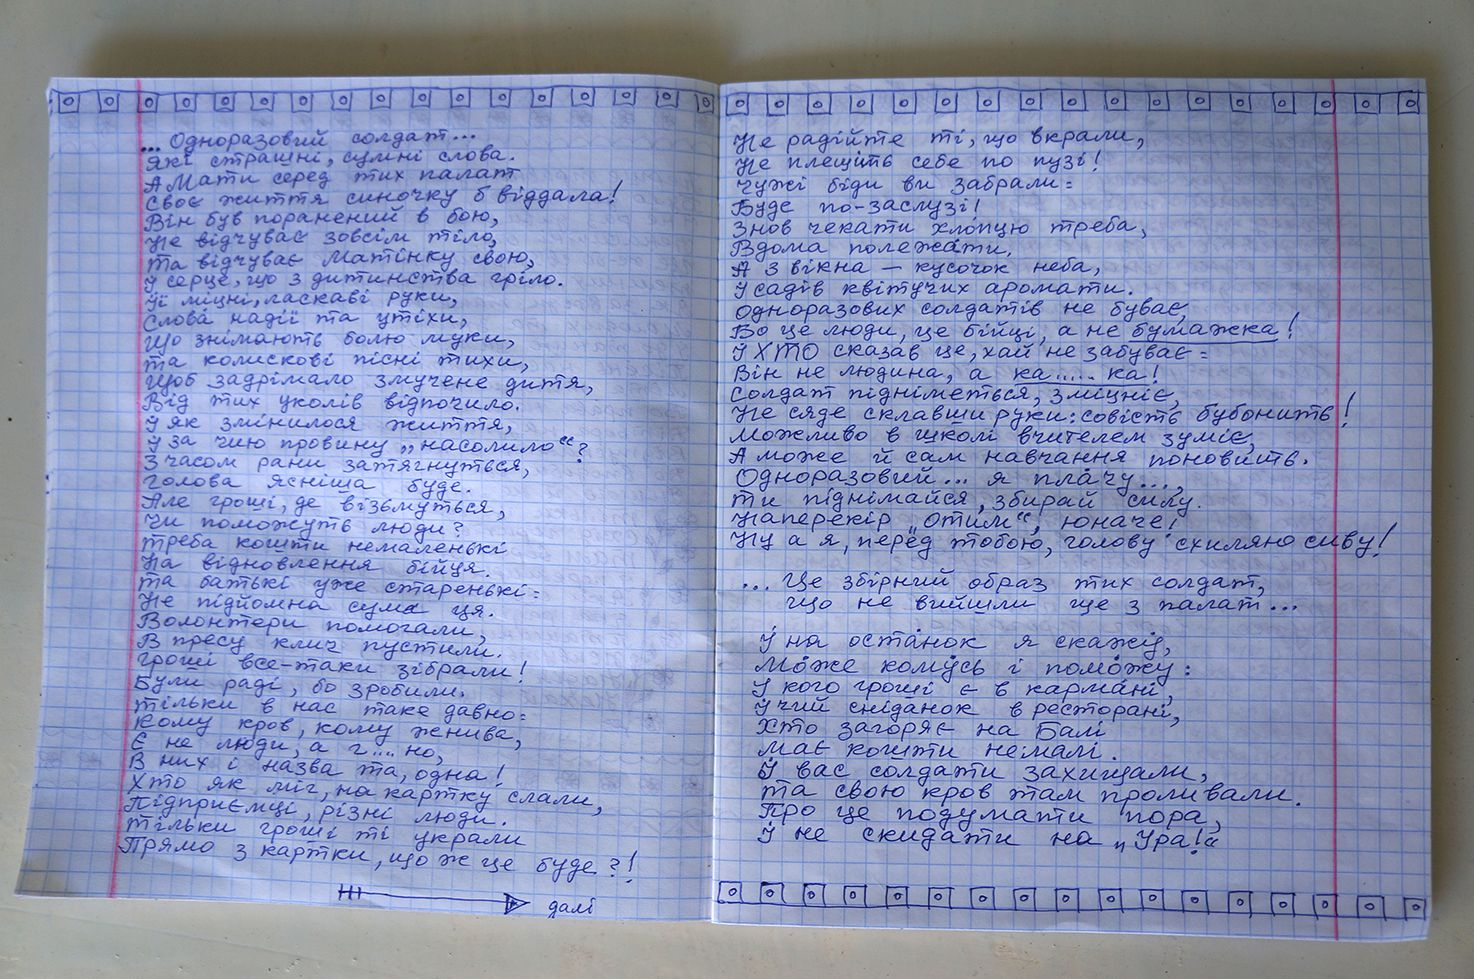 ... Одноразовий солдат...
Які страшні, сумні слова.
А Мати серед тих палат
Своє життя синочку б віддала!
Він був поранений в бою,
Не відчуває зовсім тіло,
Та відчуває Матінку свою,
І серце, що з дитинства гріло.
Її міцні, ласкаві руки,
Слова́ надії та утіхи,
Що знімають болю муки,
Та колискові пісні тихи,
Щоб задрімало змучене дитя,
Від тих уколів відпочило.
І як змінилося життя,
І за чию провину „насолило“?
З часом рани затягнуться,
Голова ясніша буде.
Але гроші, де візьмуться,
Чи поможуть люди?
Треба кошти немаленькі
На відновлення бійця.
Та батькі уже старенькі =
Не підйомна сума ця.
Волонтери помогали,
В пресу клич пустили.
Гроші все-таки зібрали!
Були раді, бо зробили.
Тільки в нас таке давно =
Кому кров, кому жнива,
Є не люди, а г....но,
В них і назва та, одна!
Хто як міг, на картку слали,
Підприємці, різні люди.
Тільки гроші ті украли
Прямо з картки, що ж це буде?!
далі
Не радійте ті, що вкрали,
Не плещіть себе по пузі!
Чужі біди ви забрали =
Буде по-заслузі!
Знов чекати хлопцю треба,
Вдома полежа́ти,
А з вікна — кусочок неба,
І садів квітучих аромати.
Одноразових солдатів не буває,
Бо це люди, це бійці, а не бумажка!
І ХТО сказав це, хай не забуває =
Він не людина, а ка.....ка!
Солдат підніметься, зміцніє,
Не сяде склавши руки: совість бубонить!
Можливо в школі вчителем зуміє,
А може й сам навчання поновить.
Одноразовий... я плачу...,
Ти піднімайся, збирай силу.
Наперекір „отим“, юначе!
Ну а я, перед тобою, голову схиляю сиву!
... Це збірний образ тих солдат,
Що не вийшли ще з палат...
І на оста́нок я скажу́,
Мо́же кому́сь і помо́жу:
І кого гроші є в карма́ні,
І чий сніданок в ресторані,
Хто загоряє на Балі
Має кошти немалі.
І вас солдати захищали,
Та свою кров там проливали.
Про це подумати пора,
І не скидати на „Ура!“